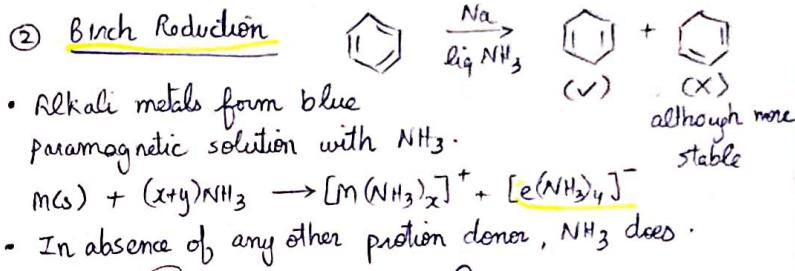 ② Birch Reduction Na
liq NH₃ +
(✓) (X)
although more
stable
• Alkali metals form blue
paramagnetic solution with NH₃.
m(s) + (x+y)NH₃ ⟶ [m(NH₃)ₓ]⁺ + [e(NH₃)y]⁻
• In absence of any other protion donor, NH₃ does.